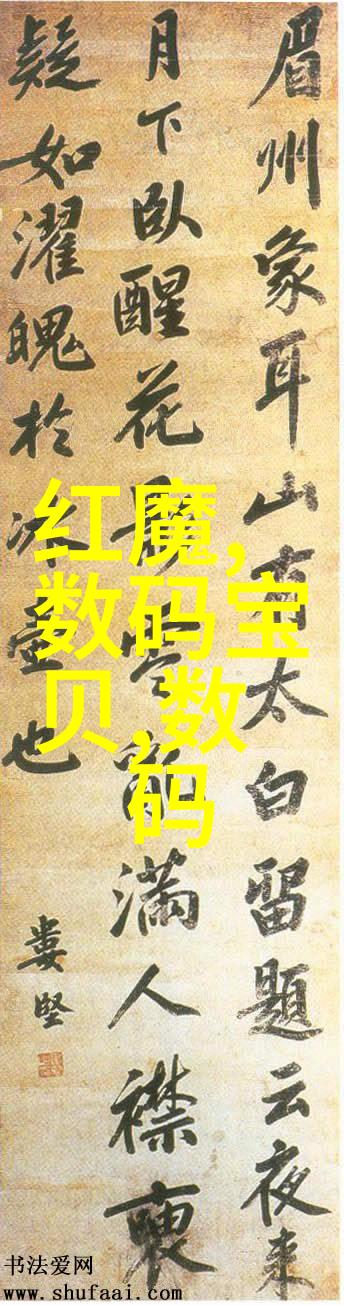 眉州象耳山有太白留題云夜来
月下臥醒花影零亂滿人襟
疑如濯魄於冰壺也
婁堅
红魔,
数码宝
贝,数
码
书法爱网
www.shufaai.com